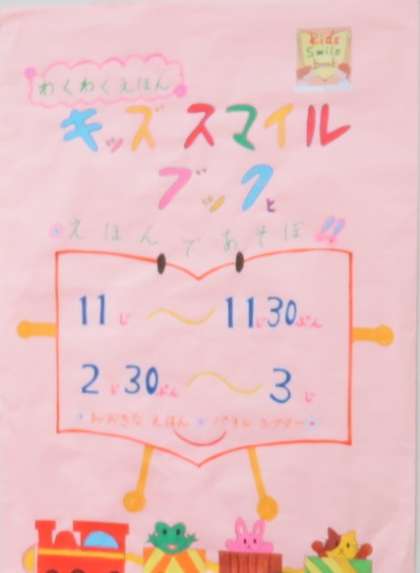 Kids
Smile
book
わくわくえほん
キッズ スマイル
ブックと
えほんであそぼ!!
11じ～11じ30ぷん
2じ30ぷん～3じ
おおきな えほん パネル シアター